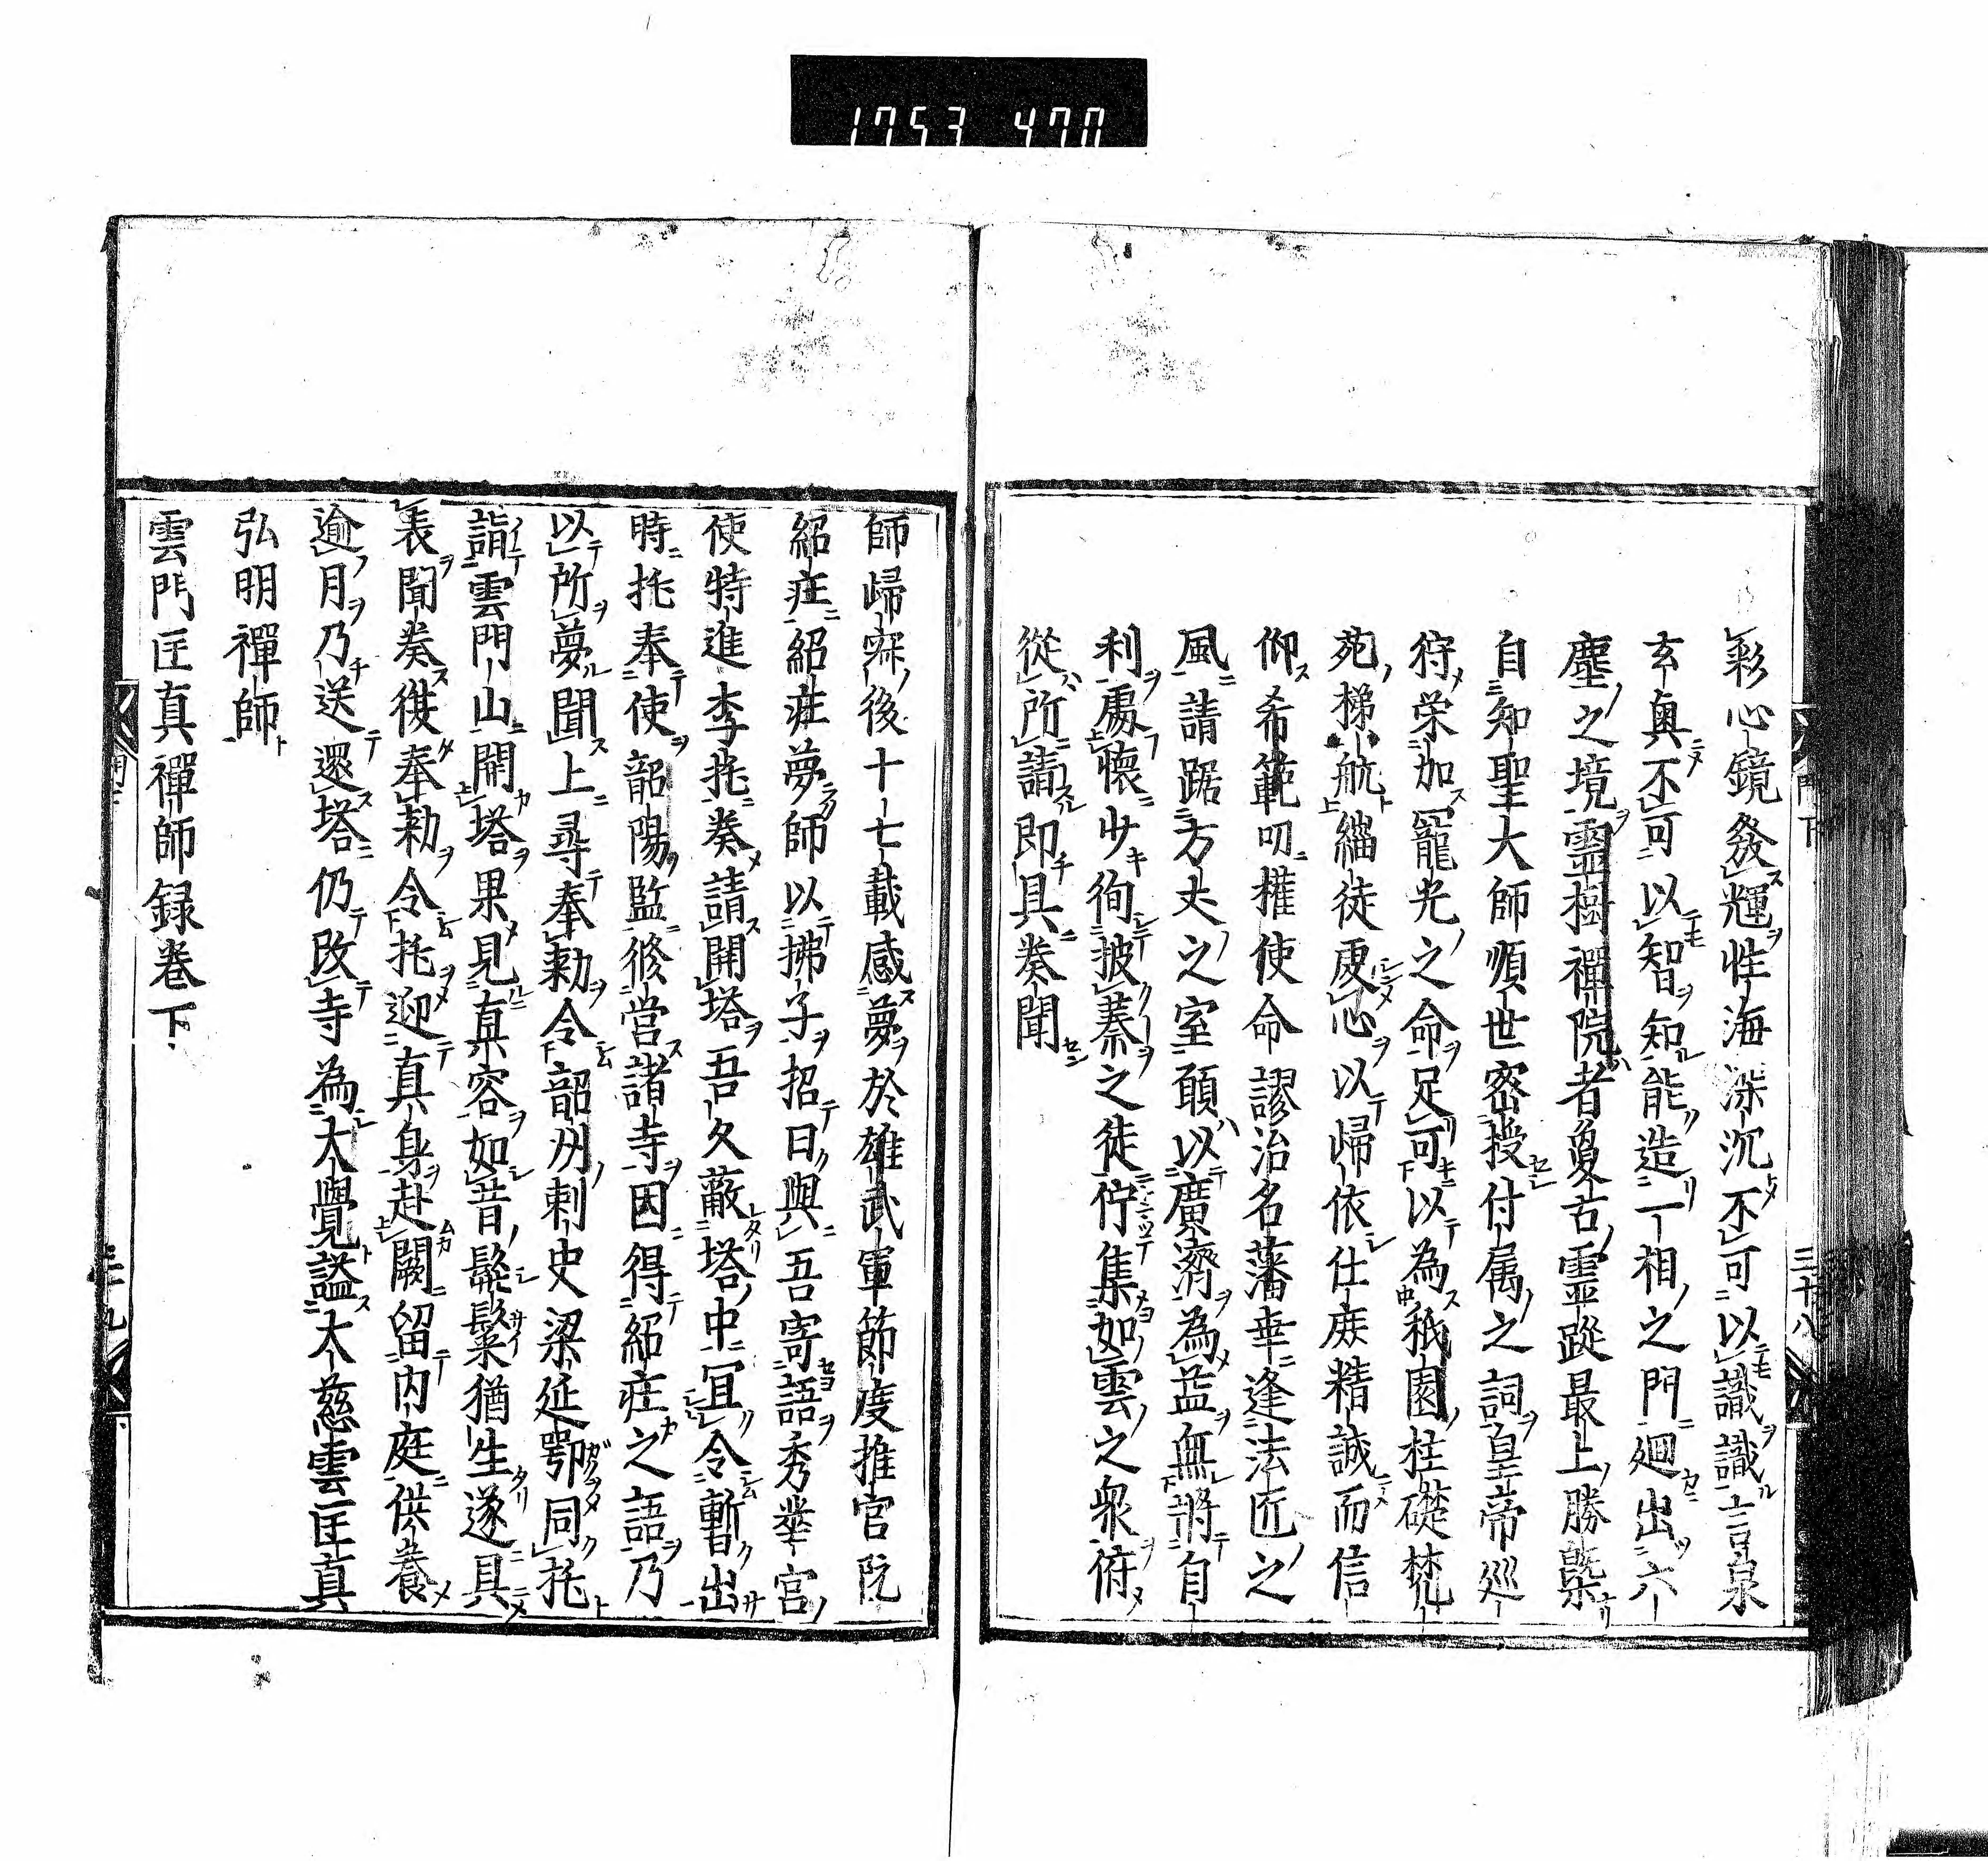 1753 470
彩心鏡發輝性海深沉不可以識識言泉
玄奥不可以智知能造一相之門廻出六
塵之境靈樹禪院者奠古靈蹤最上勝槩
自知聖大師順世密授付属之詞皇帝巡
狩栄加寵光之命足可以為秖園柱礎梵
苑梯航緇徒虔心以歸依仕庻精誠而信
仰希範叨權使命謬治名藩幸逢法匠之
風請踞方丈之室願以廣濟為益無將自
利處懷少徇披蓁之徒佇集如雲之衆府
從所請即具奏聞
門下
三十八
師歸寂後十七載感夢於雄武軍節度推官阮
紹莊紹莊夢師以拂子招曰與吾寄語秀華宮
使特進李托奏請開塔吾久蔽塔中宜令暫出
時托奉使韶陽監修営諸寺因得紹莊之語乃
以所夢聞上尋奉勑令韶州刺史梁延鄂同托
詣雲門山開塔果見真容如昔髭鬚猶生遂具
表聞奏徯奉勑令托迎真身赴闕留内庭供養
逾月乃送還塔仍改寺為大覺謚大慈雲匡真
弘明禪師
雲門匡真禪師録卷下
三十九